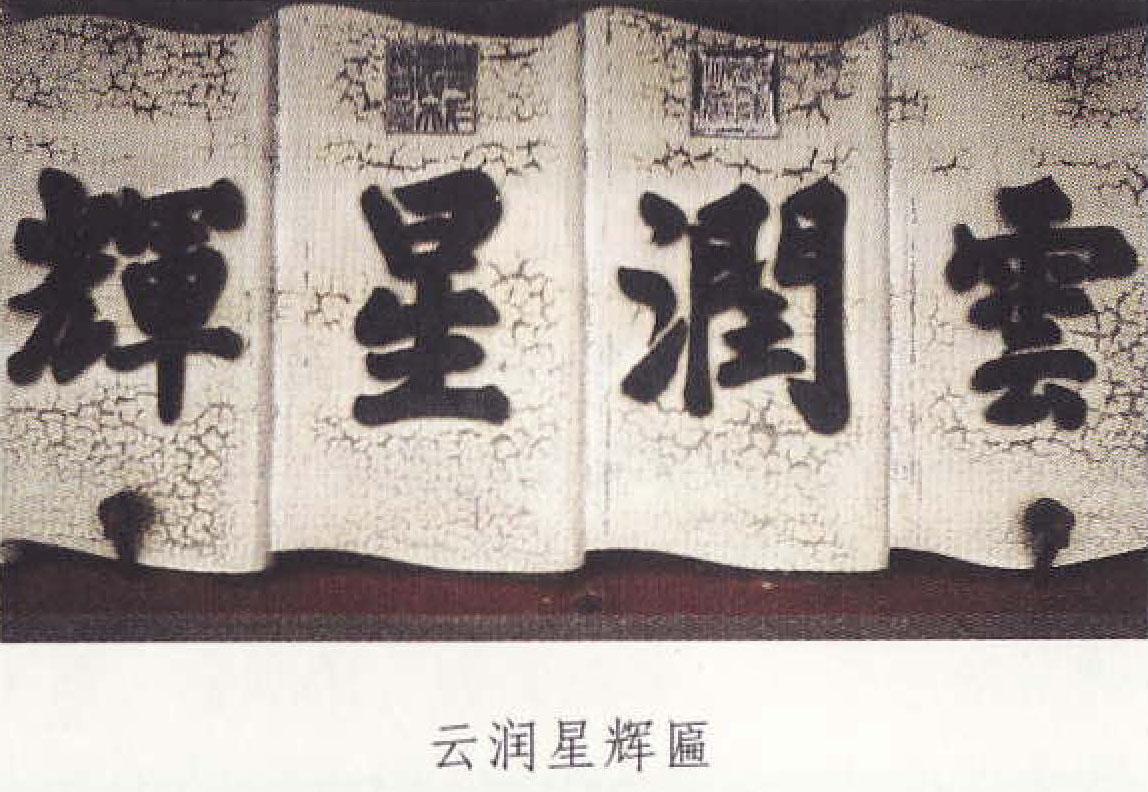 雲潤星輝
云润星辉匾